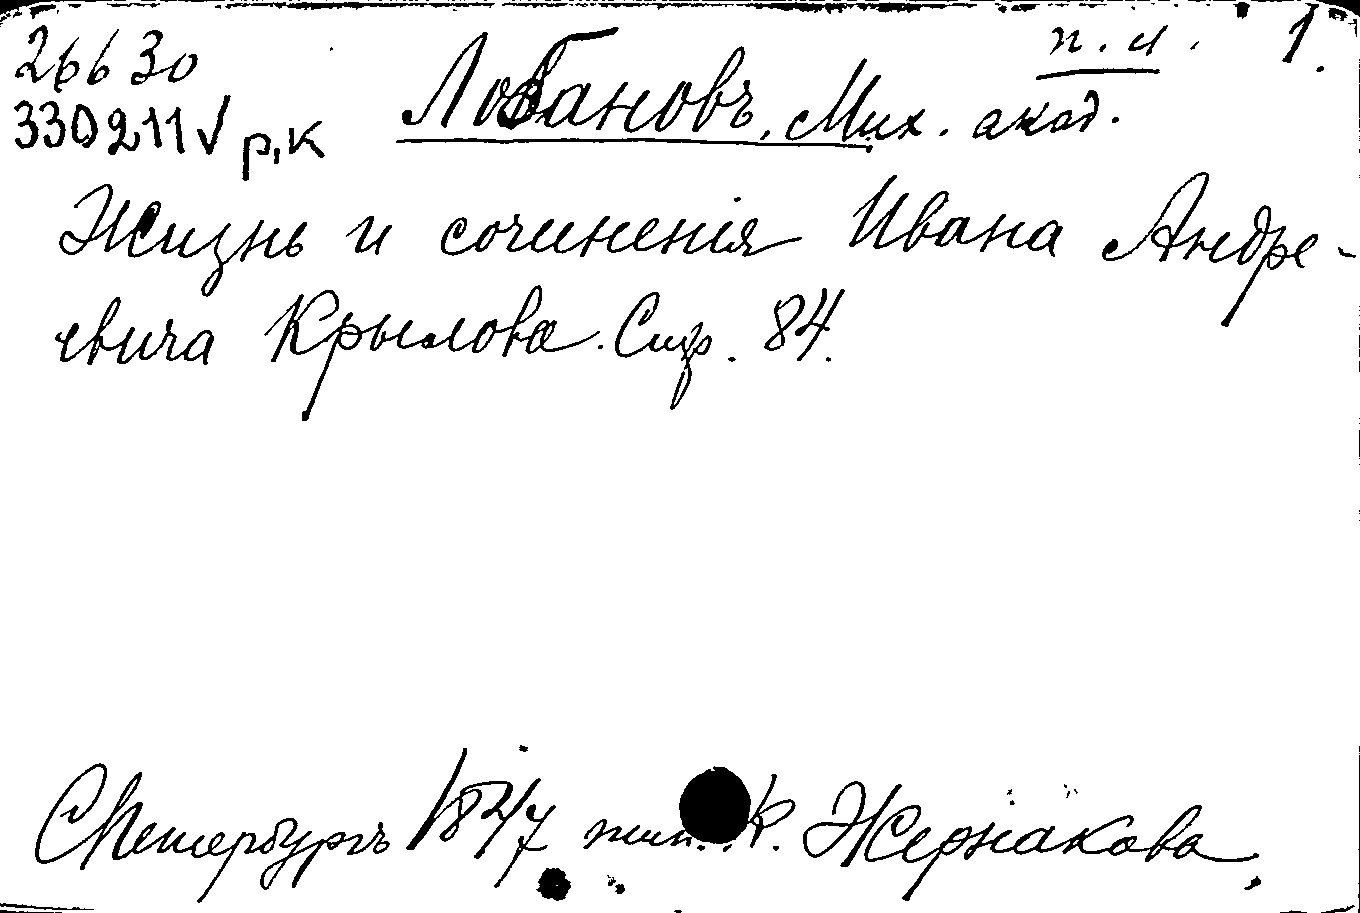 26630
п. и. 1.
330211 √ р, к
Лобановъ, Мих. акад.
Жизнь и сочиненія Ивана Андре-
евича Крылова. Стр. 84.
СПетербургъ 1847 тип. К. Жернакова,